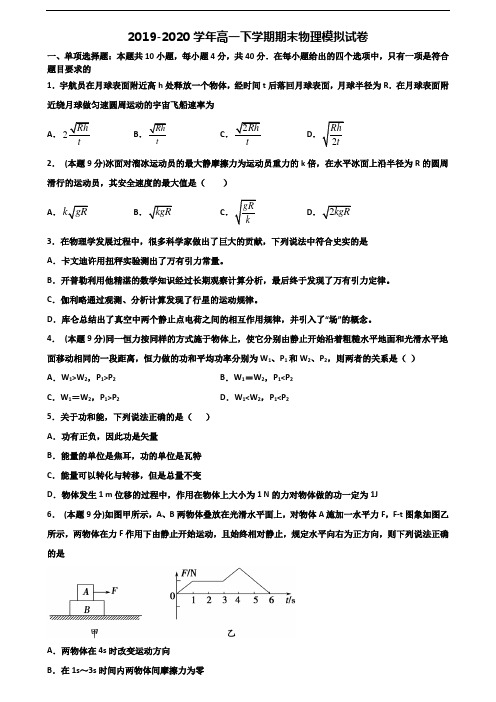 2019-2020 学年高一下学期期末物理模拟试卷
一、单项选择题：本题共 10 小题，每小题 4 分，共 40 分．在每小题给出的四个选项中，只有一项是符合
题目要求的
1．宇航员在月球表面附近高 h 处释放一个物体，经时间 t 后落回月球表面，月球半径为 R．在月球表面附
近绕月球做匀速圆周运动的宇宙飞船速率为
A．2√Rh/t B．√Rh/t C．√2Rh/t D．√(Rh/2t)
2． (本题 9 分)冰面对溜冰运动员的最大静摩擦力为运动员重力的 k 倍，在水平冰面上沿半径为 R 的圆周
滑行的运动员，其安全速度的最大值是（ ）
A．k√gR B．√kgR C．√(gR/k) D．√2kgR
3．在物理学发展过程中，很多科学家做出了巨大的贡献，下列说法中符合史实的是
A．卡文迪许用扭秤实验测出了万有引力常量。
B．开普勒利用他精湛的数学知识经过长期观察计算分析，最后终于发现了万有引力定律。
C．伽利略通过观测、分析计算发现了行星的运动规律。
D．库仑总结出了真空中两个静止点电荷之间的相互作用规律，并引入了“场”的概念。
4． (本题 9 分)同一恒力按同样的方式施于物体上，使它分别由静止开始沿着粗糙水平地面和光滑水平地
面移动相同的一段距离，恒力做的功和平均功率分别为 W₁、P₁ 和 W₂、P₂，则两者的关系是（ ）
A．W₁>W₂，P₁>P₂ B．W₁＝W₂，P₁<P₂
C．W₁＝W₂，P₁>P₂ D．W₁<W₂，P₁<P₂
5．关于功和能，下列说法正确的是（ ）
A．功有正负，因此功是矢量
B．能量的单位是焦耳，功的单位是瓦特
C．能量可以转化与转移，但是总量不变
D．物体发生 1 m 位移的过程中，作用在物体上大小为 1 N 的力对物体做的功一定为 1J
6． (本题 9 分)如图甲所示，A、B 两物体叠放在光滑水平面上，对物体 A 施加一水平力 F，F-t 图象如图乙
所示，两物体在力 F 作用下由静止开始运动，且始终相对静止，规定水平向右为正方向，则下列说法正确
的是
A F
B
甲
F/N
0 1 2 3 4 5 6 t/s
乙
A．两物体在 4s 时改变运动方向
B．在 1s～3s 时间内两物体间摩擦力为零